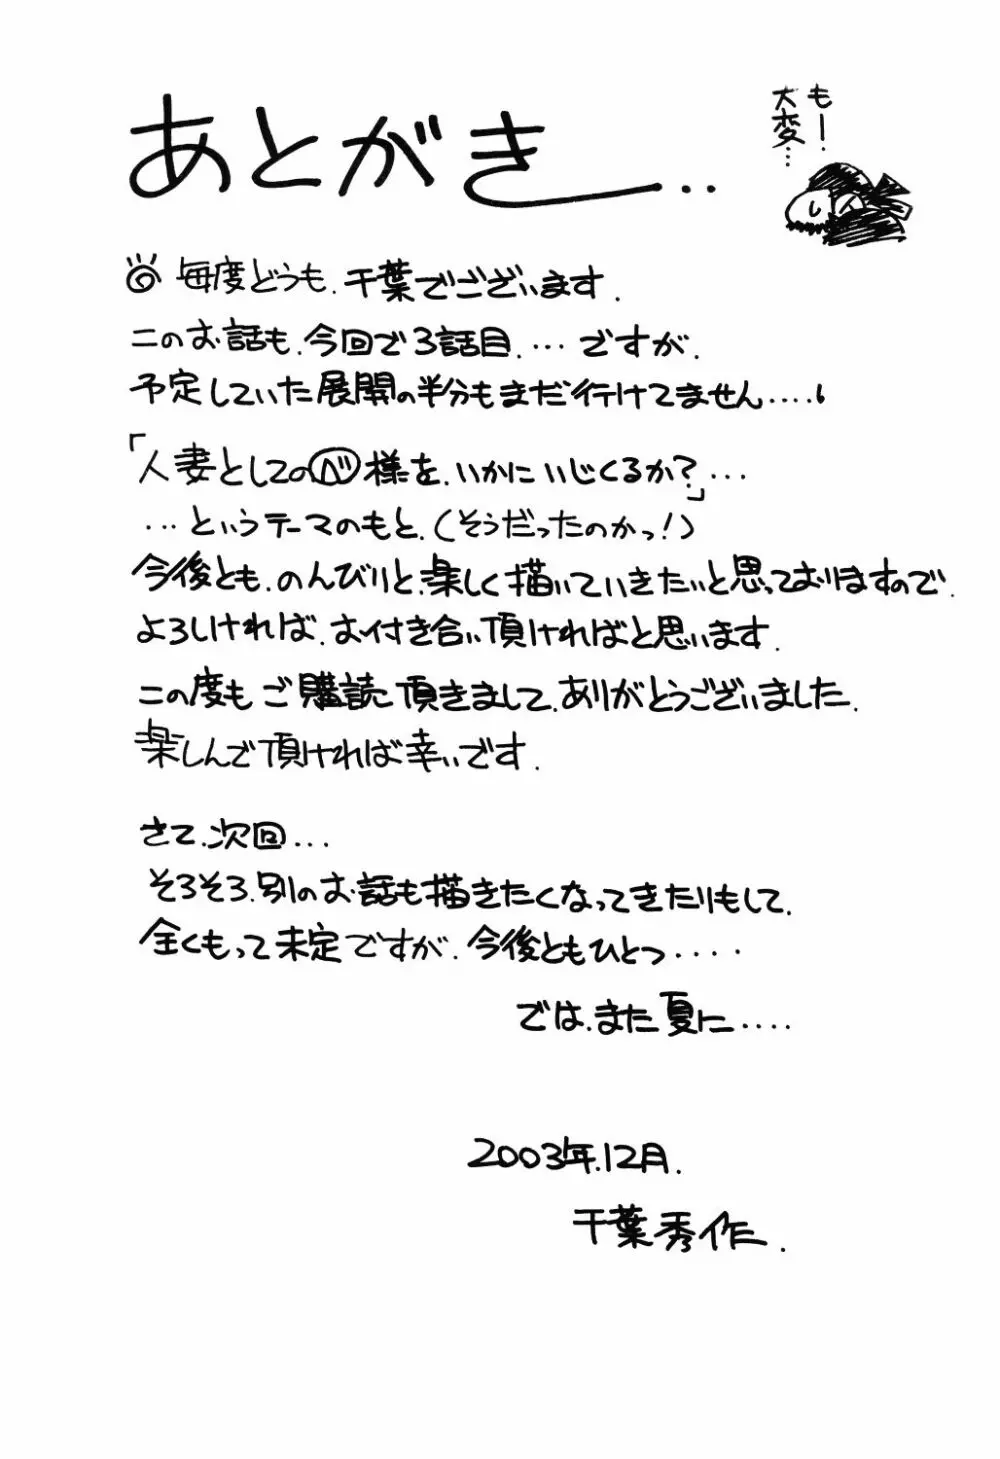 あとがき...
もー
大変...
毎度どうも.千葉でございます.
このお話も.今回で3話目.…ですが.
予定していた展開の半分もまだ行けてません....
「人妻としてのベ様を.いかにいじくるか?」...
...というテーマのもと.(そうだったのかっ!)
今後とも.のんびりと.楽しく描いていきたいと思っておりますので.
よろしければ.お付き合い頂ければと思います.
この度もご購読頂きまして.ありがとうございました.
楽しんで頂ければ幸いです.
さて.次回...
そろそろ.別のお話も描きたくなってきたりもして.
全くもって未定ですが.今後ともひとつ....
では.また夏に....
2003年.12月.
千葉秀作.